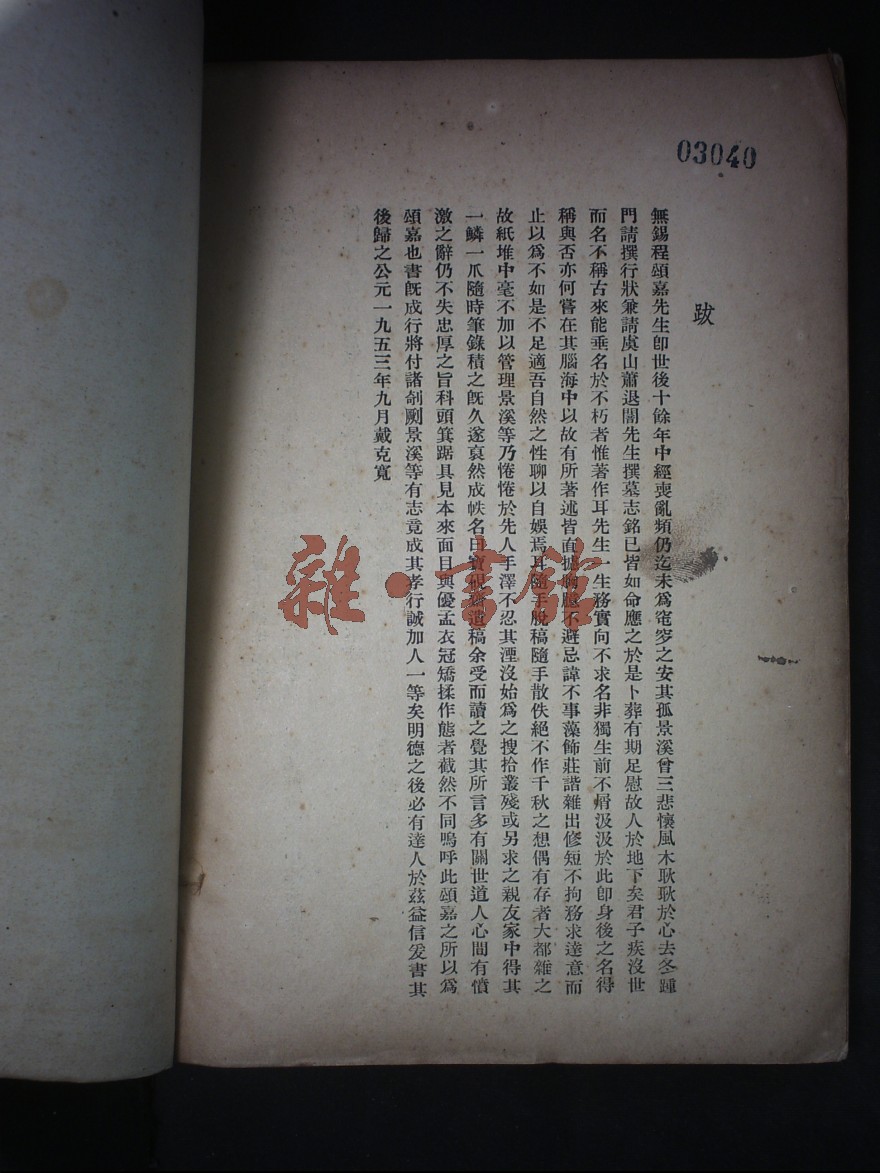 03040
跋
無錫程頌嘉先生卽世後十餘年中經喪亂頻仍迄未爲窀穸之安其孤景溪曾三悲懷風木耿耿於心去冬踵
門請撰行狀兼請虞山蕭退闇先生撰墓志銘已皆如命應之於是卜葬有期足慰故人於地下矣君子疾沒世
而名不稱古來能垂名於不朽者惟著作耳先生一生務實向不求名非獨生前不屑汲汲於此卽身後之名得
稱與否亦何嘗在其腦海中以故有所著述皆面攄胸臆不避忌諱不事藻飾莊諧雜出修短不拘務求達意而
止以爲不如是不足適吾自然之性聊以自娛焉耳隨手脫稿隨手散佚絕不作千秋之想偶有存者大都雜之
故紙堆中毫不加以管理景溪等乃惓惓於先人手澤不忍其湮沒始爲之搜拾叢殘或另求之親友家中得其
一鱗一爪隨時筆錄積之旣久遂裒然成帙名曰寶硯齋遺稿余受而讀之覺其所言多有關世道人心間有憤
激之辭仍不失忠厚之旨科頭箕踞具見本來面目與優孟衣冠矯揉作態者截然不同嗚呼此頌嘉之所以爲
頌嘉也書旣成行將付諸剞劂景溪等有志竟成其孝行誠加人一等矣明德之後必有達人於茲益信爰書其
後歸之公元一九五三年九月戴克寬
雜·書館